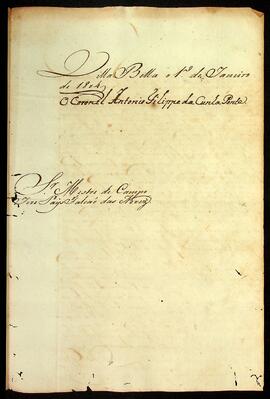 Villa Bella 1º de Janeiro
de 1804
O Coronel Antonio Filippe da Cunha Ponte
Sr. Mestre de Campo
Joze Paes Falcaõ das Neves